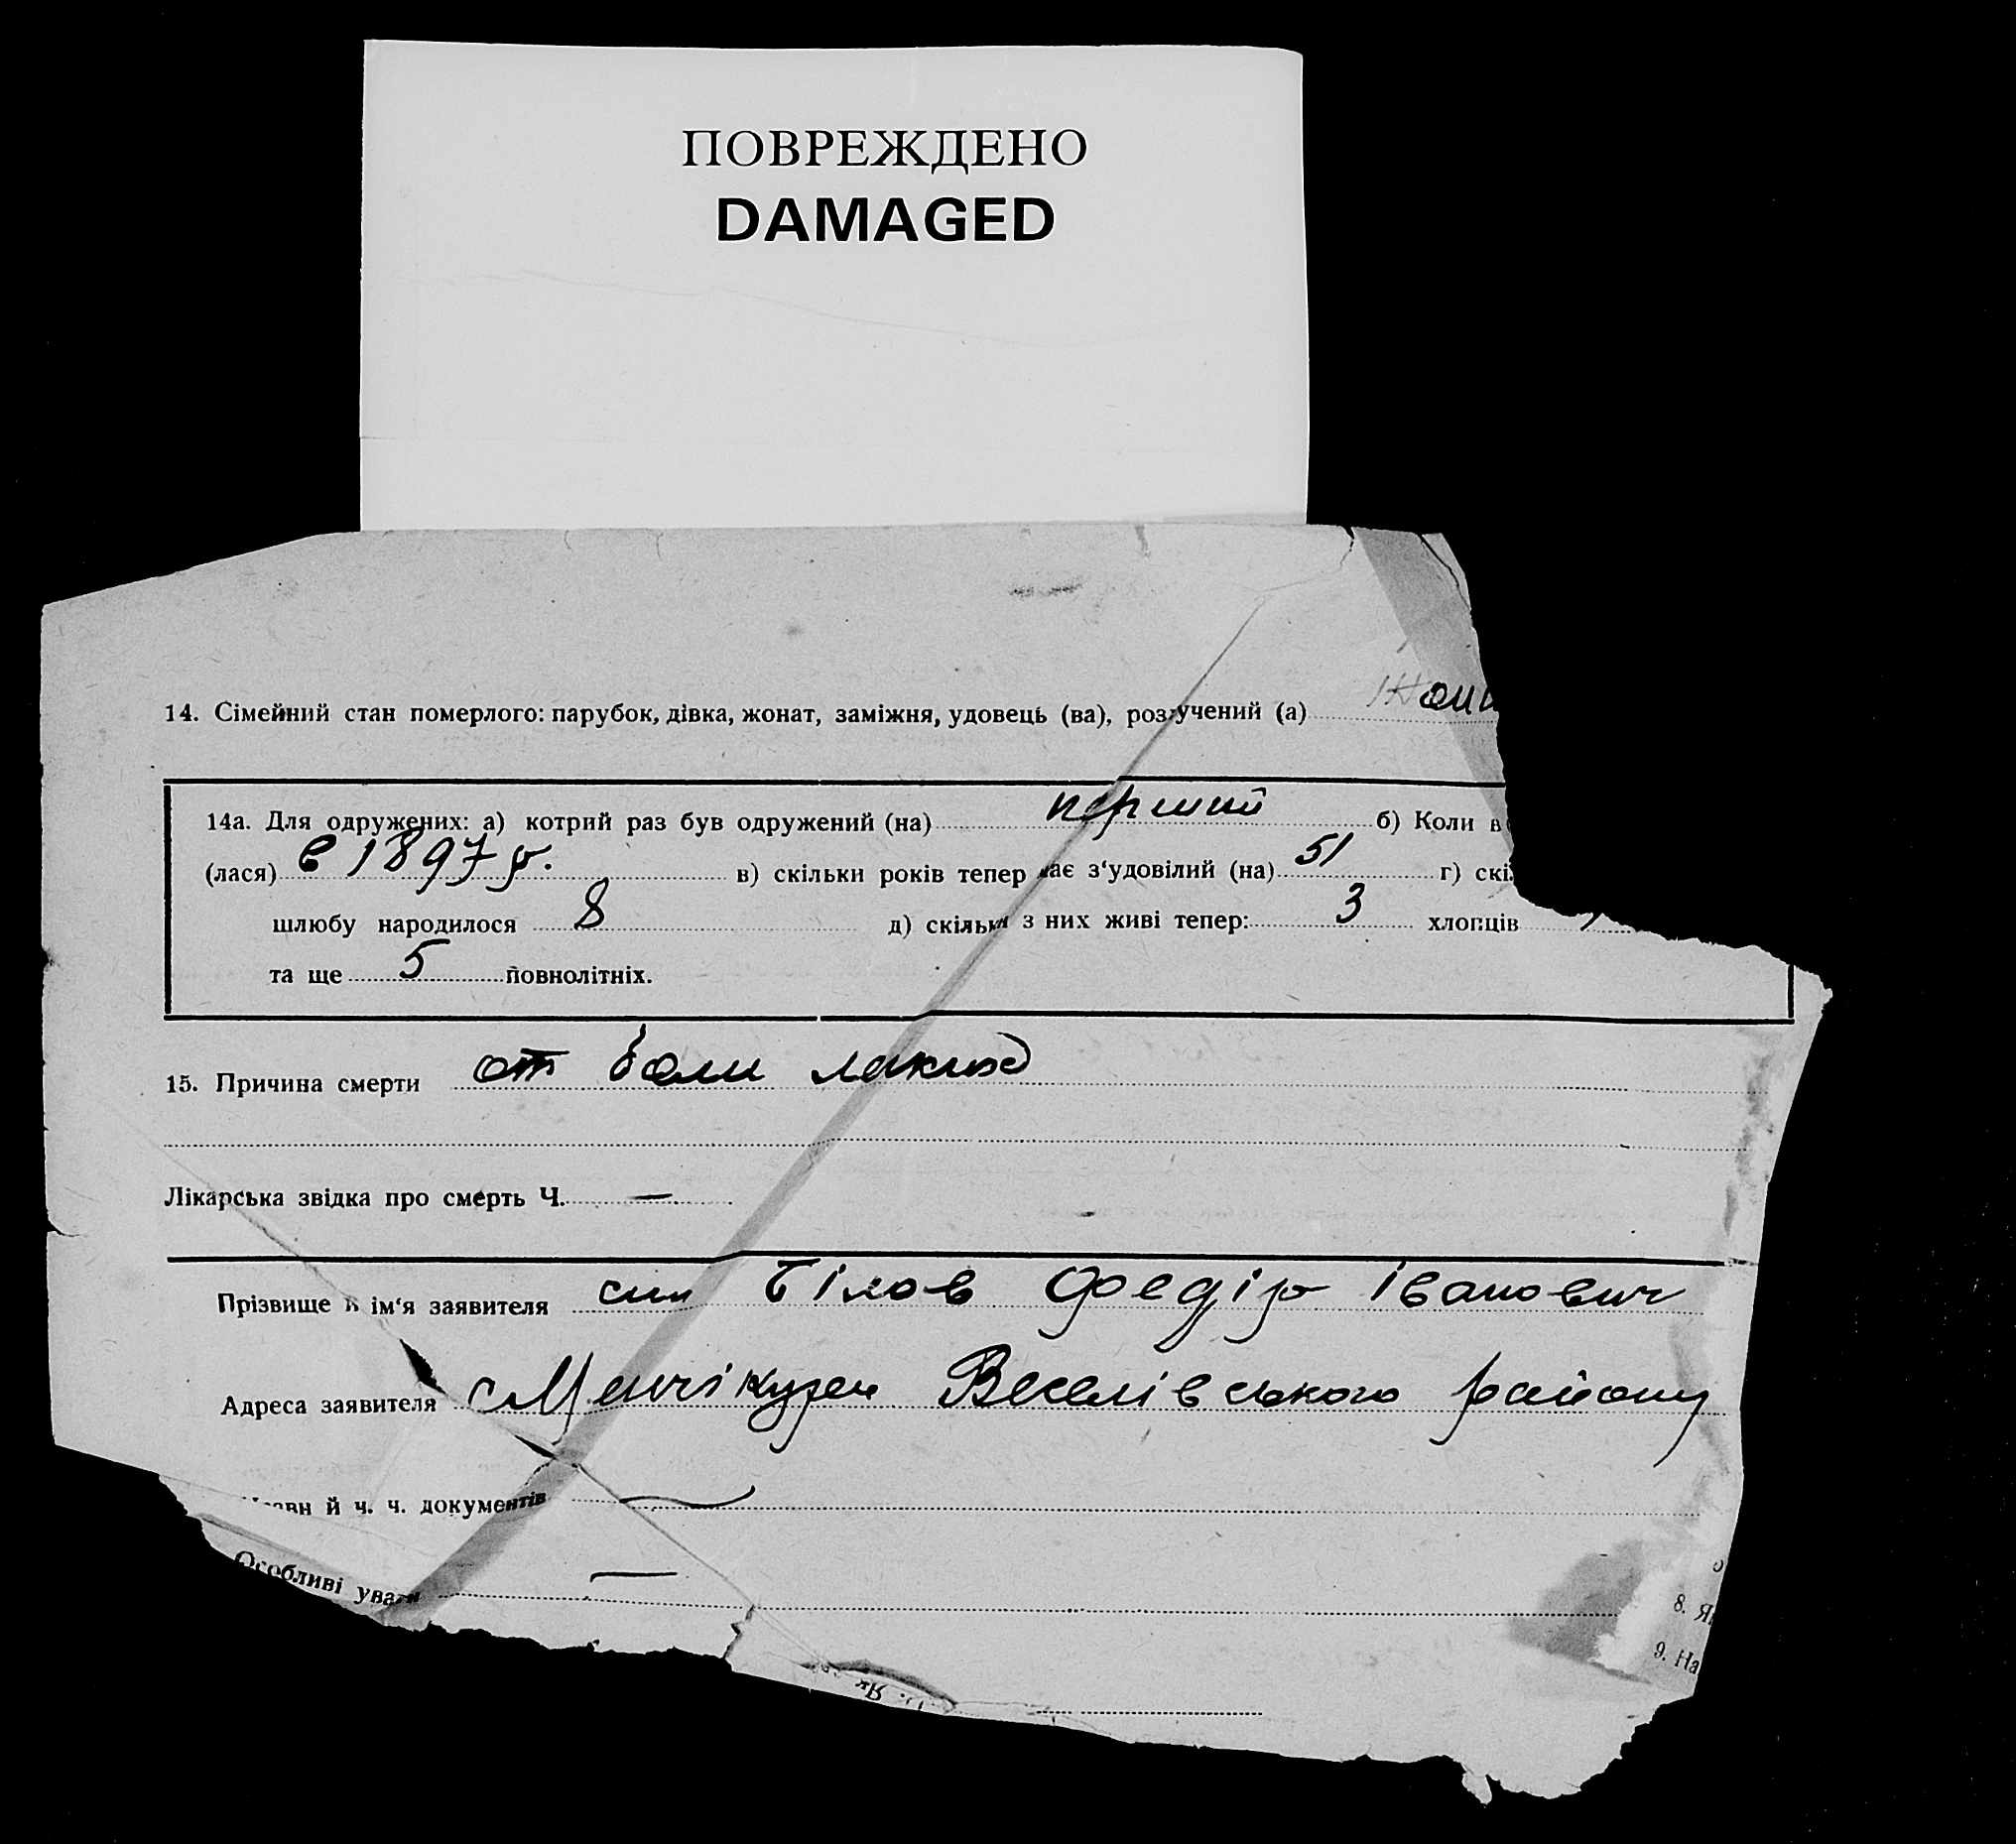 ПОВРЕЖДЕНО
DAMAGED
14. Сімейний стан померлого: парубок, дівка, жонат, заміжня, удовець (ва), розлучений (а)
14а. Для одружених: а) котрий раз був одружений (на) перший б) Коли
(лася) в 1897 р. в) скільки років тепер має з‘удовілий (на) 51 г) скі
шлюбу народилося 8 д) скільки з них живі тепер: 3 хлопців
та ще 5 повнолітніх.
15. Причина смерти от боли
Лікарська звідка про смерть Ч. —
Прізвище й ім‘я заявителя син Білов Федір Іванович
Адреса заявителя с Менчікури Веселівського району
й ч. ч. документів —
Особливі уваги —
8. Я
9. На